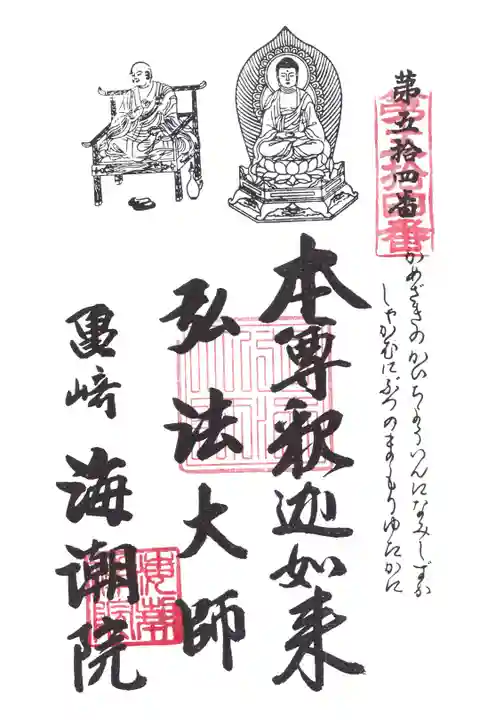 第五拾四番
かめざきのかいちょういんになみしずか
しゃかむにぶつのまもりゆたかに
本尊釈迦如来
弘法大師
亀﨑 海潮院